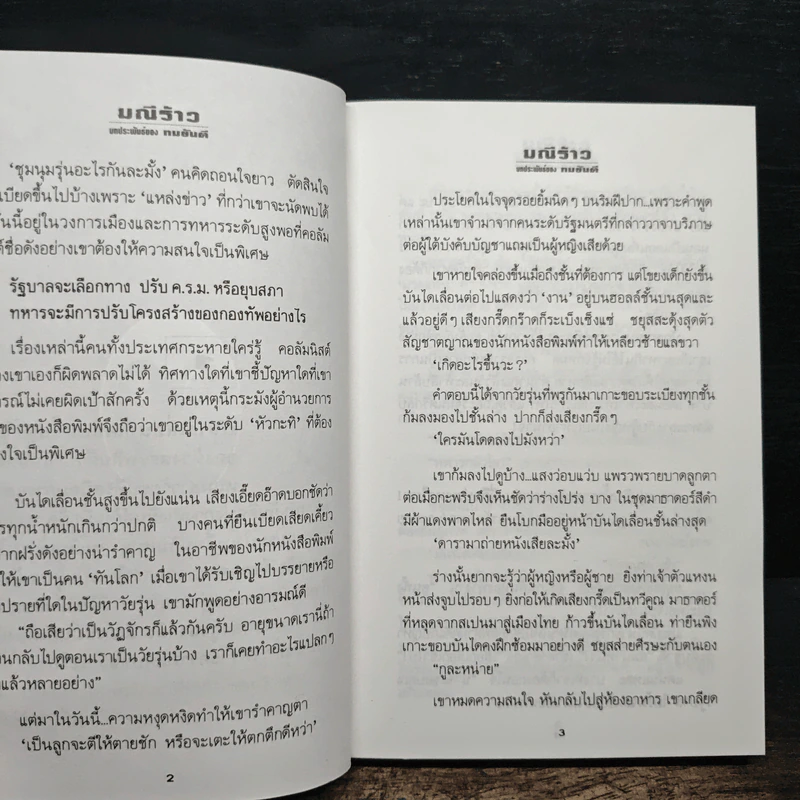 มณีร้าว
บทประพันธ์ของ ทมยันตี
‘ชุมนุมรุ่นอะไรกันละมั้ง’ คนคิดถอนใจยาว ตัดสินใจ
เบียดขึ้นไปบ้างเพราะ ‘แหล่งข่าว’ ที่กว่าเขาจะนัดพบได้
วันนี้อยู่ในวงการเมืองและการทหารระดับสูงพอที่คอลัม
ชื่อดังอย่างเขาต้องให้ความสนใจเป็นพิเศษ
รัฐบาลจะเลือกทาง ปรับ ค.ร.ม. หรือยุบสภา
ทหารจะมีการปรับโครงสร้างของกองทัพอย่างไร
เรื่องเหล่านี้คนทั้งประเทศกระหายใคร่รู้ คอลัมนิสต์
เขาเองก็ผิดพลาดไม่ได้ ทิศทางใดที่เขาชี้ปัญหาใดที่เขา
ารณ์ไม่เคยผิดเป้าสักครั้ง ด้วยเหตุนี้กระมังผู้อำนวยการ
ของหนังสือพิมพ์จึงถือว่าเขาอยู่ในระดับ ‘หัวกะทิ’ ที่ต้อง
ใจเป็นพิเศษ
บันไดเลื่อนชั้นสูงขึ้นไปยังแน่น เสียงเอี๊ยดอ๊าดบอกชัดว่า
รทุกน้ำหนักเกินกว่าปกติ บางคนที่ยืนเบียดเสียดเคี้ยว
ากฝรั่งดังอย่างน่ารำคาญ ในอาชีพของนักหนังสือพิมพ์
ให้เขาเป็นคน ‘ทันโลก’ เมื่อเขาได้รับเชิญไปบรรยายหรือ
ปรายที่ใดในปัญหาวัยรุ่น เขามักพูดอย่างอารมณ์ดี
“ถือเสียว่าเป็นวัฏจักรก็แล้วกันครับ อายุขนาดเรานี่ถ้า
นกลับไปดูตอนเราเป็นวัยรุ่นบ้าง เราก็เคยทำอะไรแปลกๆ
แล้วหลายอย่าง”
แต่มาในวันนี้...ความหงุดหงิดทำให้เขารำคาญตา
‘เป็นลูกจะตีให้ตายชัก หรือจะเตะให้ตกตึกดีหว่า’
2
มณีร้าว
บทประพันธ์ของ ทมยันตี
ประโยคในใจจุดรอยยิ้มนิดๆ บนริมฝีปาก...เพราะคำพูด
เหล่านั้นเขาจำมาจากคนระดับรัฐมนตรีที่กล่าววาจาบริภาษ
ต่อผู้ใต้บังคับบัญชาแถมเป็นผู้หญิงเสียด้วย
เขาหายใจคล่องขึ้นเมื่อถึงชั้นที่ต้องการ แต่โขยงเด็กยังขึ้น
บันไดเลื่อนต่อไปแสดงว่า ‘งาน’ อยู่บนฮอลล์ชั้นบนสุดและ
แล้วอยู่ดีๆ เสียงกรี๊ดกร๊าดก็ระเบ็งเซ็งแซ่ ชยุสสะดุ้งสุดตัว
สัญชาตญาณของนักหนังสือพิมพ์ทำให้เหลียวซ้ายแลขวา
‘เกิดอะไรขึ้นวะ ?’
คำตอบนี้ได้จากวัยรุ่นที่พรูกันมาเกาะขอบระเบียงทุกชั้น
ก้มลงมองไปชั้นล่าง ปากก็ส่งเสียงกรี๊ดๆ
‘ใครมันโดดลงไปมังหว่า’
เขาก้มลงไปดูบ้าง...แสงว่อบแว่บ แพรวพรายบาดลูกตา
ต่อเมื่อกะพริบจึงเห็นชัดว่าร่างโปร่ง บาง ในชุดมาธาดอร์สีดำ
มีผ้าแดงพาดไหล่ ยืนโบกมืออยู่หน้าบันไดเลื่อนชั้นล่างสุด
‘ดารามาถ่ายหนังเสียละมั้ง’
ร่างนั้นยากจะรู้ว่าผู้หญิงหรือผู้ชาย ยิ่งท่าเจ้าตัวแหงน
หน้าส่งจูบไปรอบๆ ยิ่งก่อให้เกิดเสียงกรี๊ดเป็นทวีคูณ มาธาดอร์
ที่หลุดจากสเปนมาสู่เมืองไทย ก้าวขึ้นบันไดเลื่อน ท่ายืนพิง
เกาะขอบบันไดคงฝึกซ้อมมาอย่างดี ชยุสส่ายศีรษะกับตนเอง
“กูละหน่าย”
เขาหมดความสนใจ หันกลับไปสู่ห้องอาหาร เขาเกลียด
3